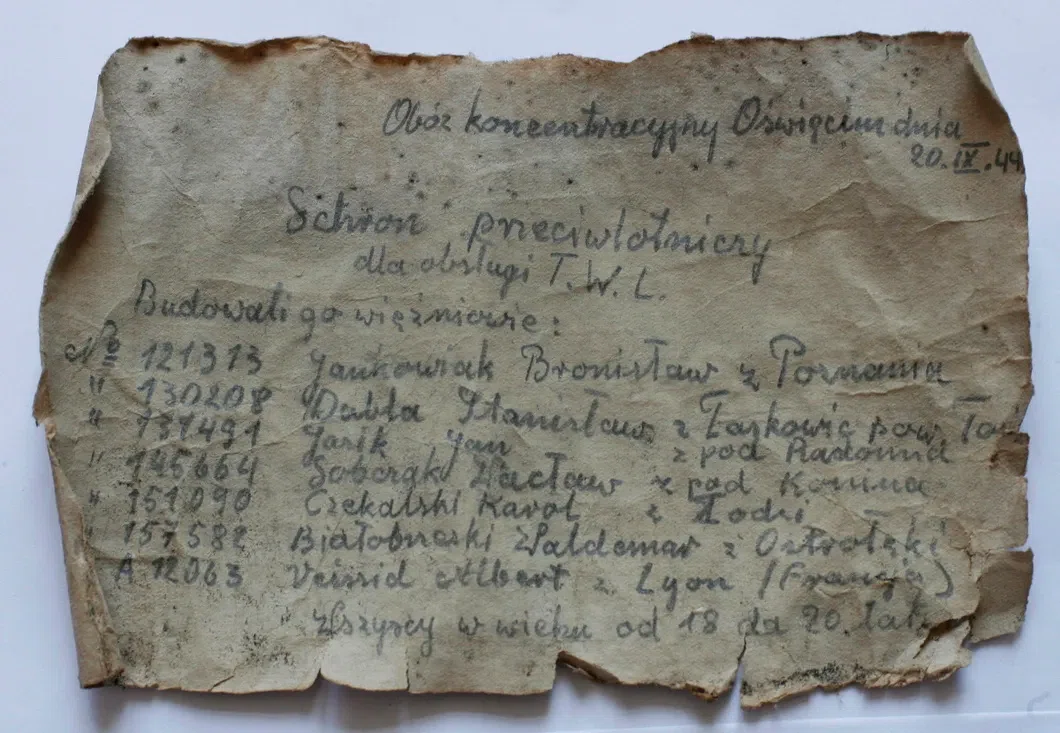 Obóz koncentracyjny Oświęcim dnia
20.IX.44
Schron przeciwlotniczy
dla obsługi T.W.L.
Budowali go więźniowie:
№ 121313 Jankowiak Bronisław z Poznania
" 130208 Dubla Stanisław z Łaskowic pow.
" 131491 Jasik Jan z pod Radomia
" 145664 Sobczak Wacław z pod Konina
" 151090 Czekalski Karol z Łodzi
" 157582 Białobrzeski Waldemar z Ostrołęki
A 12063 Veissid Albert z Lyon (Francja)
Wszyscy w wieku od 18 do 20 lat.